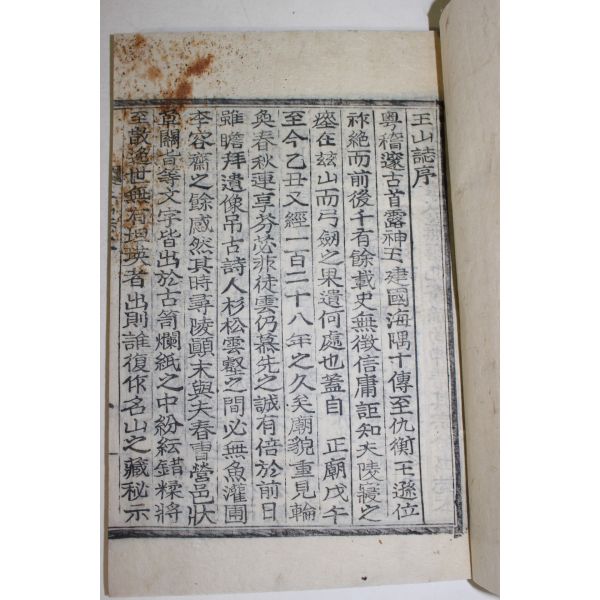 王山誌序
粤稽邃古首露神王建國海隅十傳至仇衡王遜位
祚絶而前後千有餘載史無徵信庸詎知夫陵寢之
在玆山而弓劒之果遺何處也盖自 正廟戊午
至今乙丑又經一百二十八年之久矣廟貌重見輪
奐春秋連享芬苾非徒雲仍慕先之誠有倍於前日
雖瞻拜遺像吊古詩人杉松雲壑之間必無魚灌圃
李容齋之餘感然其時尋陵顚末與夫春曺營邑狀
草關旨等文字皆出於古笥爛紙之中紛紜錯糅將
至散逸世無有 者出則誰復作名山之藏秘示